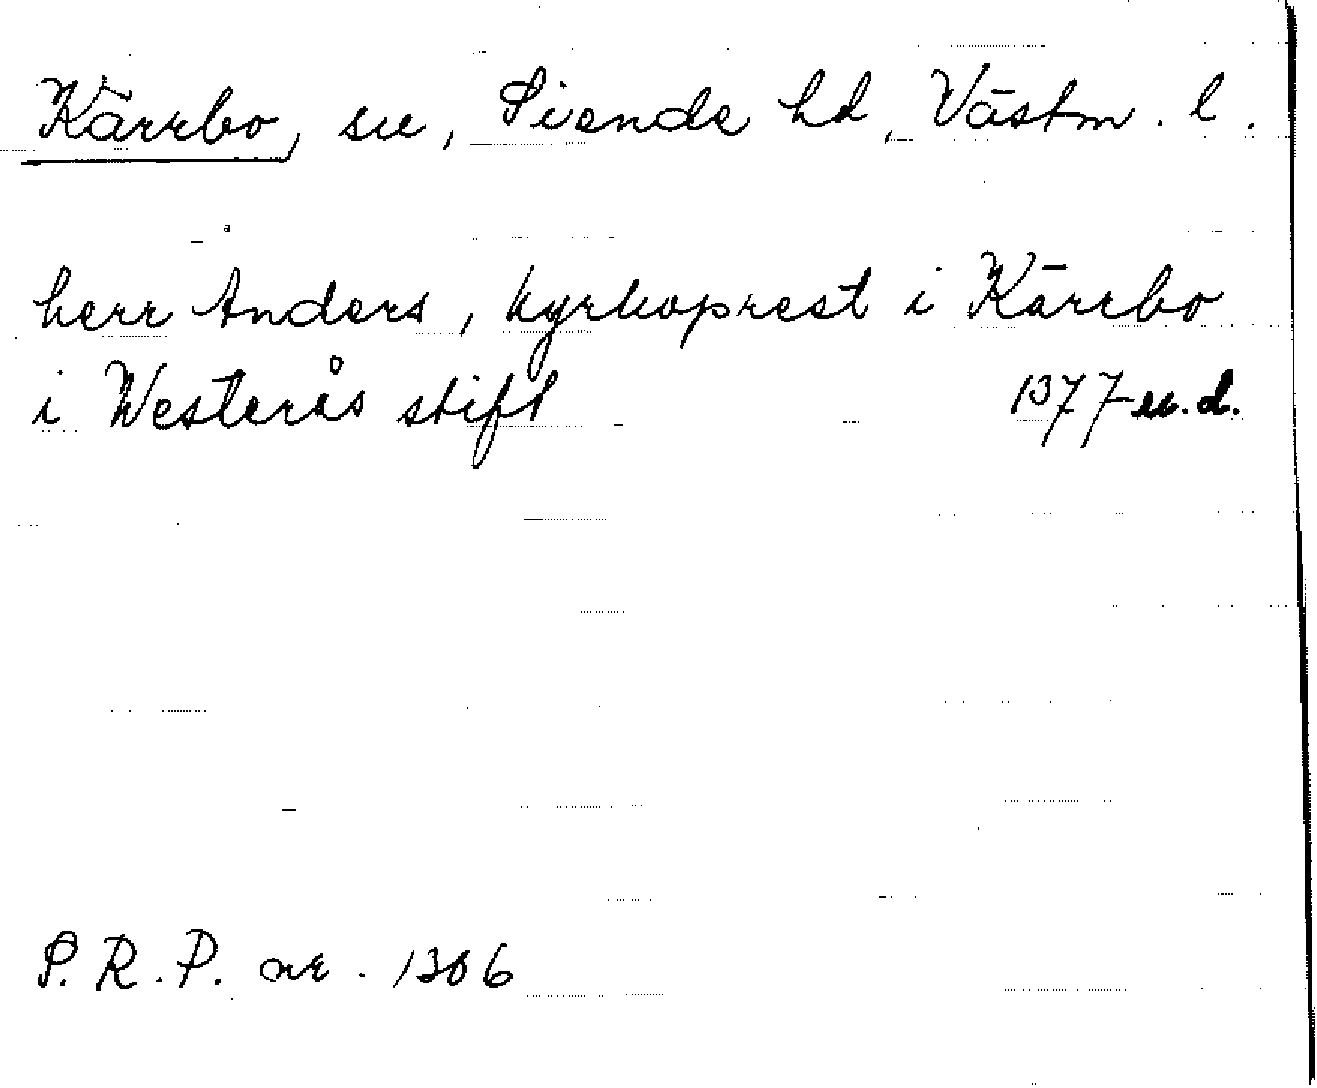 Kärrbo, sn, Siende hd, Västm. l.
herr Anders, kyrkoprest i Kärrbo
i Westerås stift 1377 u.d.
S.R.P. nr. 1306